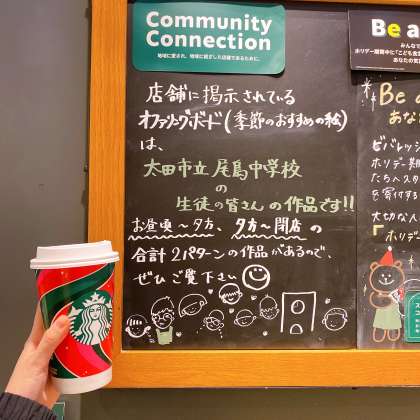 Community
Connection
地域に愛され、地域に根ざした店舗であるために。
店舗に掲示されている
オファリングボード(季節のおすすめの絵)
は、
太田市立 尾島中学校
の
生徒の皆さん の作品です!!
お昼頃〜夕方、夕方〜閉店 の
合計 2パターンの作品があるので、
ぜひ ご覧下さい
Be a
みんなで
ホリデー期間中に「こども食
あなたの気
Be a
あなた
ビバレッジ
ホリデー期
たちへスタ
を寄付する
大切な人
「ホリデー